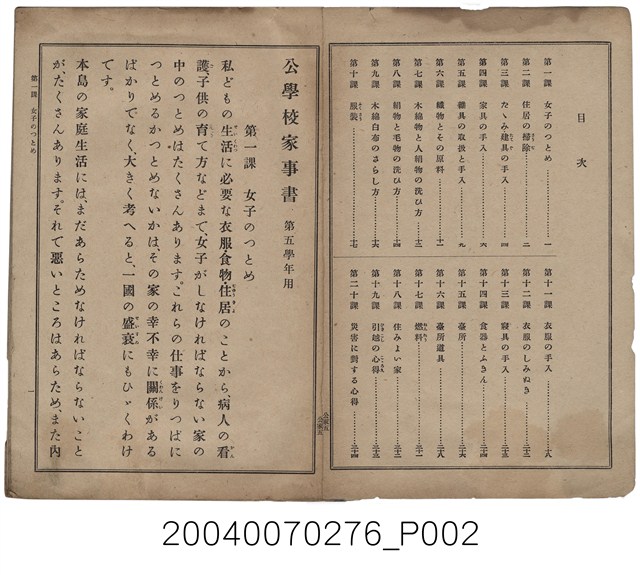 目次
第一課 女子のつとめ 一
第二課 住居の掃除 二
第三課 たゝみ建具の手入 四
第四課 家具の手入 六
第五課 器具の取扱と手入 九
第六課 織物とその原料 十一
第七課 木綿物と人絹物の洗ひ方 十三
第八課 絹物と毛物の洗ひ方 十五
第九課 木綿白布のさらし方 十六
第十課 服装 十七
第十一課 衣服の手入 十八
第十二課 衣服のしみぬき
第十三課 寝具の手入
第十四課 食器とふきん
第十五課 臺所
第十六課 臺所道具
第十七課 燃料
第十八課 住みよい家
第十九課 引越の心得
第二十課 災害に對する心得 三十四
公學校家事書 第五學年用
第一課 女子のつとめ
私どもの生活に必要な衣服食物住居のことから病人の看
護、子供の育て方などまで、女子がしなければならない家の
中のつとめはたくさんあります。これらの仕事をりつぱに
つとめるかつとめないかは、その家の幸不幸に關係がある
ばかりでなく、大きく考へると、一國の盛衰にもひゞくわけ
です。
本島の家庭生活には、まだあらためなければならないこと
が、たくさんあります。それで悪いところはあらため、また内
第一課 女子のつとめ
一
20040070276_P002